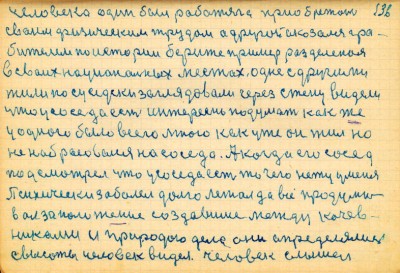 человека один был работяга приобретал 536
своим физическим трудом а другой оказался гра-
бителем по истории берите пример разделения
в своих национальных местах. одне с другими
жили по суседски заглядовали через стену видели
что у соседа есть интересно подумат как же
у одного было всего много как уже он жил но
не набрасовался на соседа. А когда его сосед
подсмотрел что у соседа есть то чего нет у меня
Психически заболел долго лежал да всё продумы-
вал заположение создавшие между кочев-
никами и природого дела они определялись
с высоты человек видел. Человек слышал